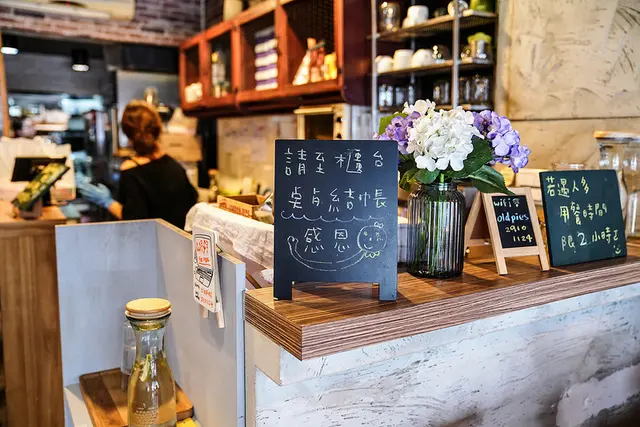 請至櫃台
桌貞結帳
感恩
wifi
oldpies
2910
1124
若遇人多
用餐時間
限2小時